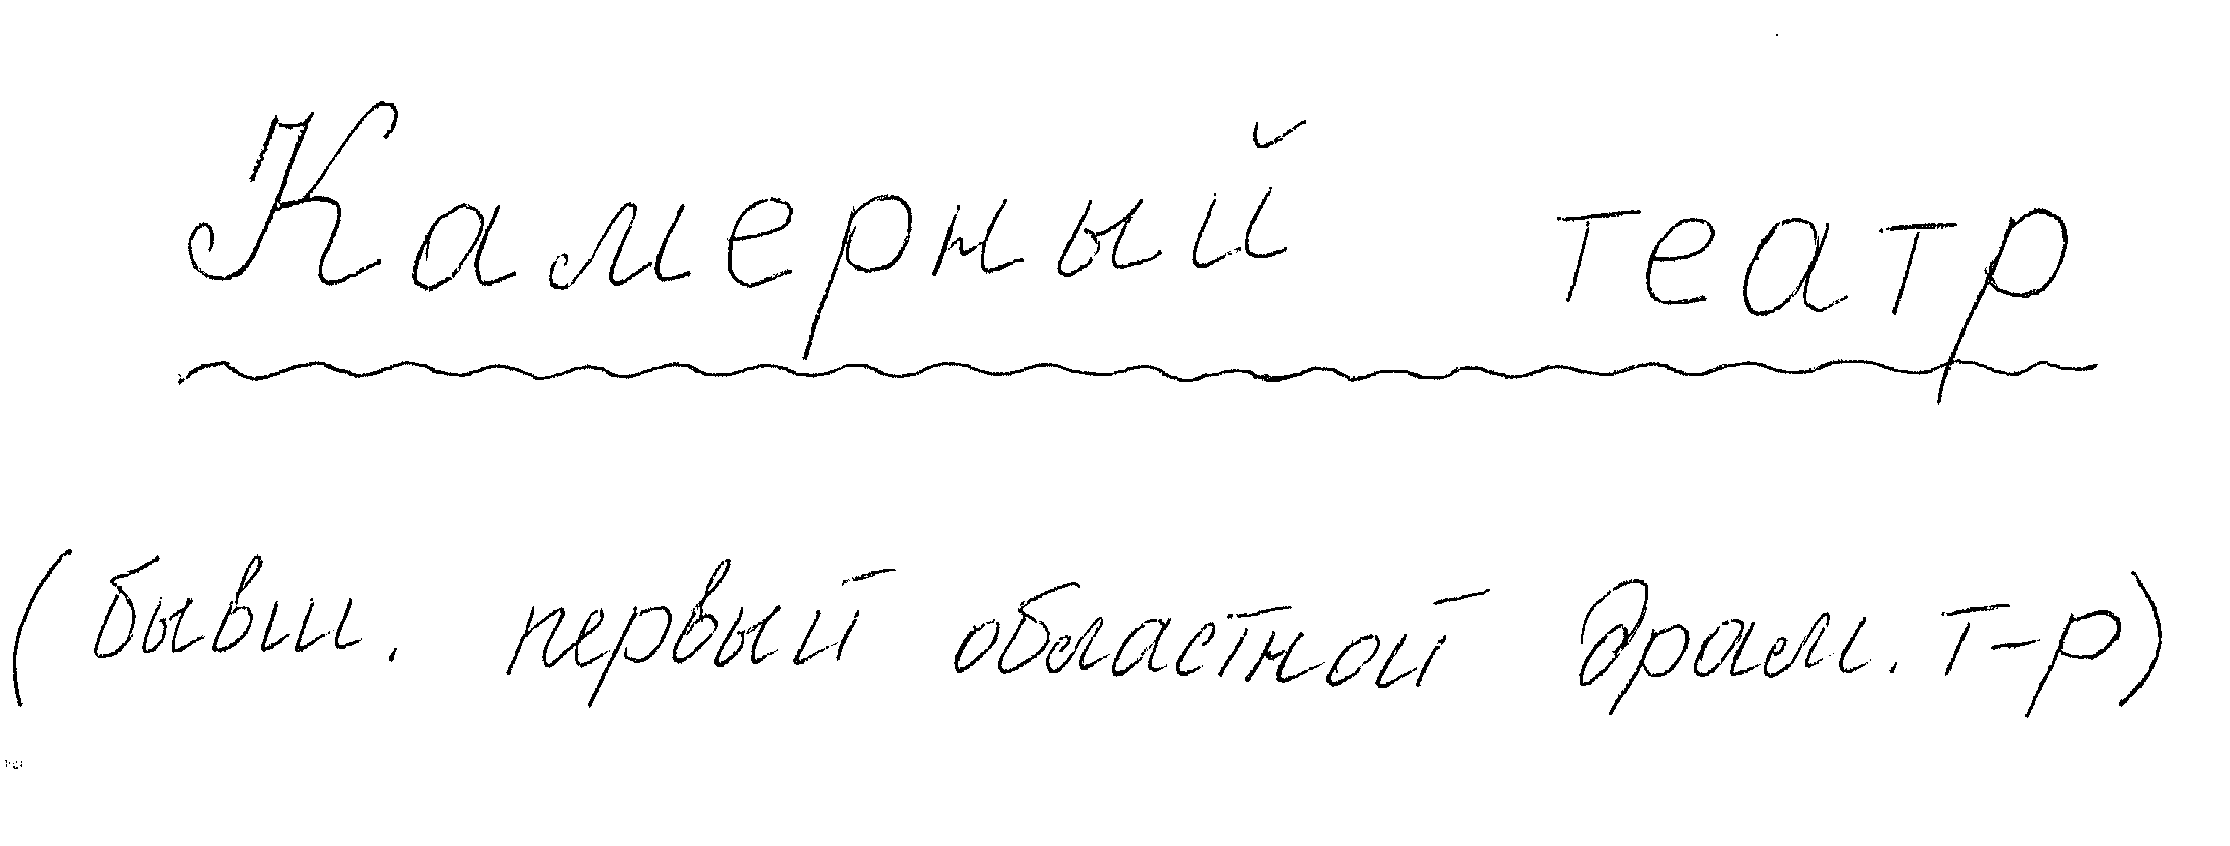 Камерный театр
(бывш. первый областной драм. т-р)